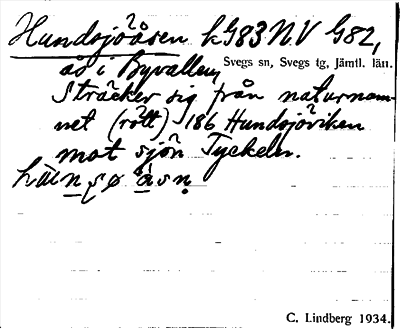 Hundsjöåsen kG83 N.V G82,
ås i Byvallen,
Svegs sn, Svegs tg, Jämtl. län.
Sträcker sig från naturnam-
net (rött) 186 Hundsjöviken
mot sjön Tyckeln.
C. Lindberg 1934.